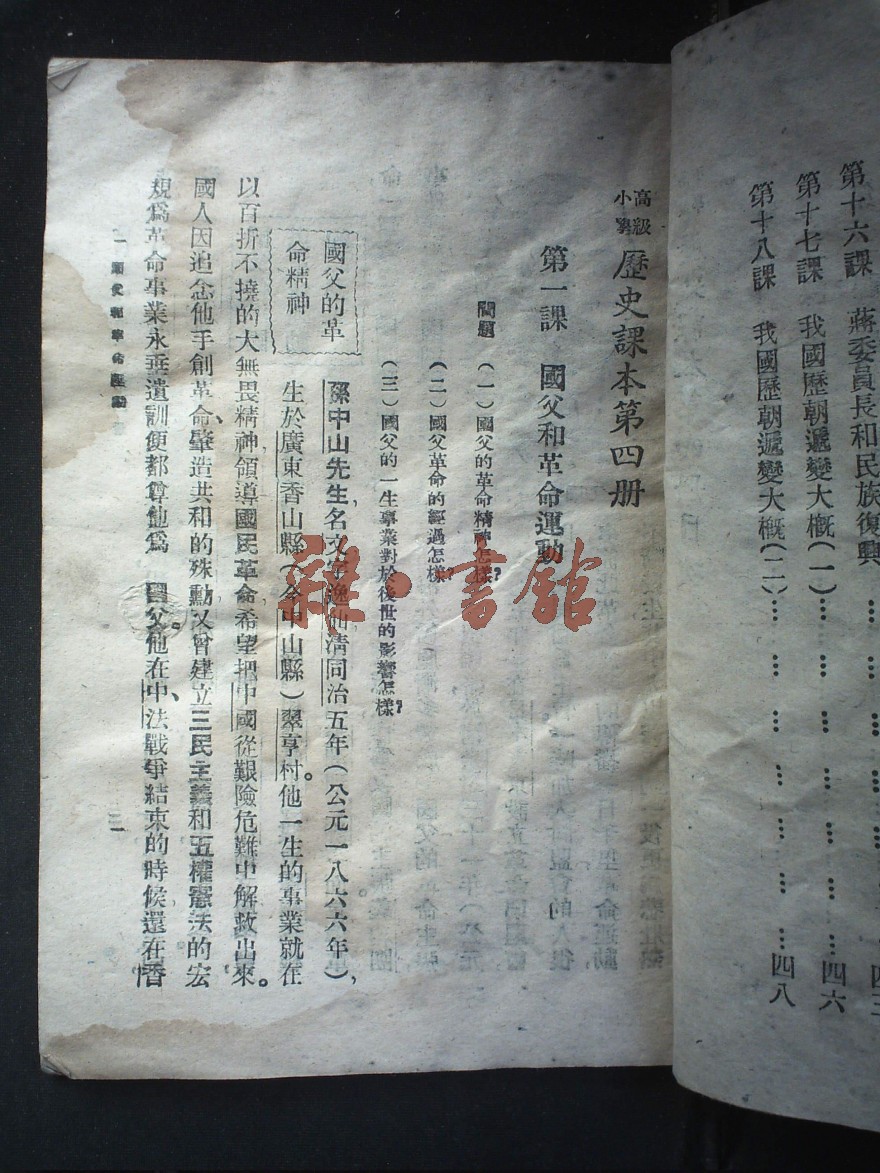 第十六課　蔣委員長和民族復興
第十七課　我國歷朝遞變大概(一)………………四六
第十八課　我國歷朝遞變大概(二)………………四八
高級
小學
歷史課本第四册
第一課　國父和革命運動
問題　(一)國父的革命精神怎樣?
(二)國父革命的經過怎樣?
(三)國父的一生事業對於後世的影響怎樣?
國父的革
命精神
孫中山先生名文字逸仙清同治五年(公元一八六六年),
生於廣東香山縣(今中山縣)翠亨村。他一生的事業就在
以百折不撓的大無畏精神領導國民革命希望把中國從艱險危難中解救出來。
國人因追念他手創革命、肇造共和的殊勳又曾建立三民主義和五權憲法的宏
規爲革命事業永垂遺訓便都尊他爲　國父。他在中、法戰爭結束的時候還在香
一　國父和革命運動
雜·書館